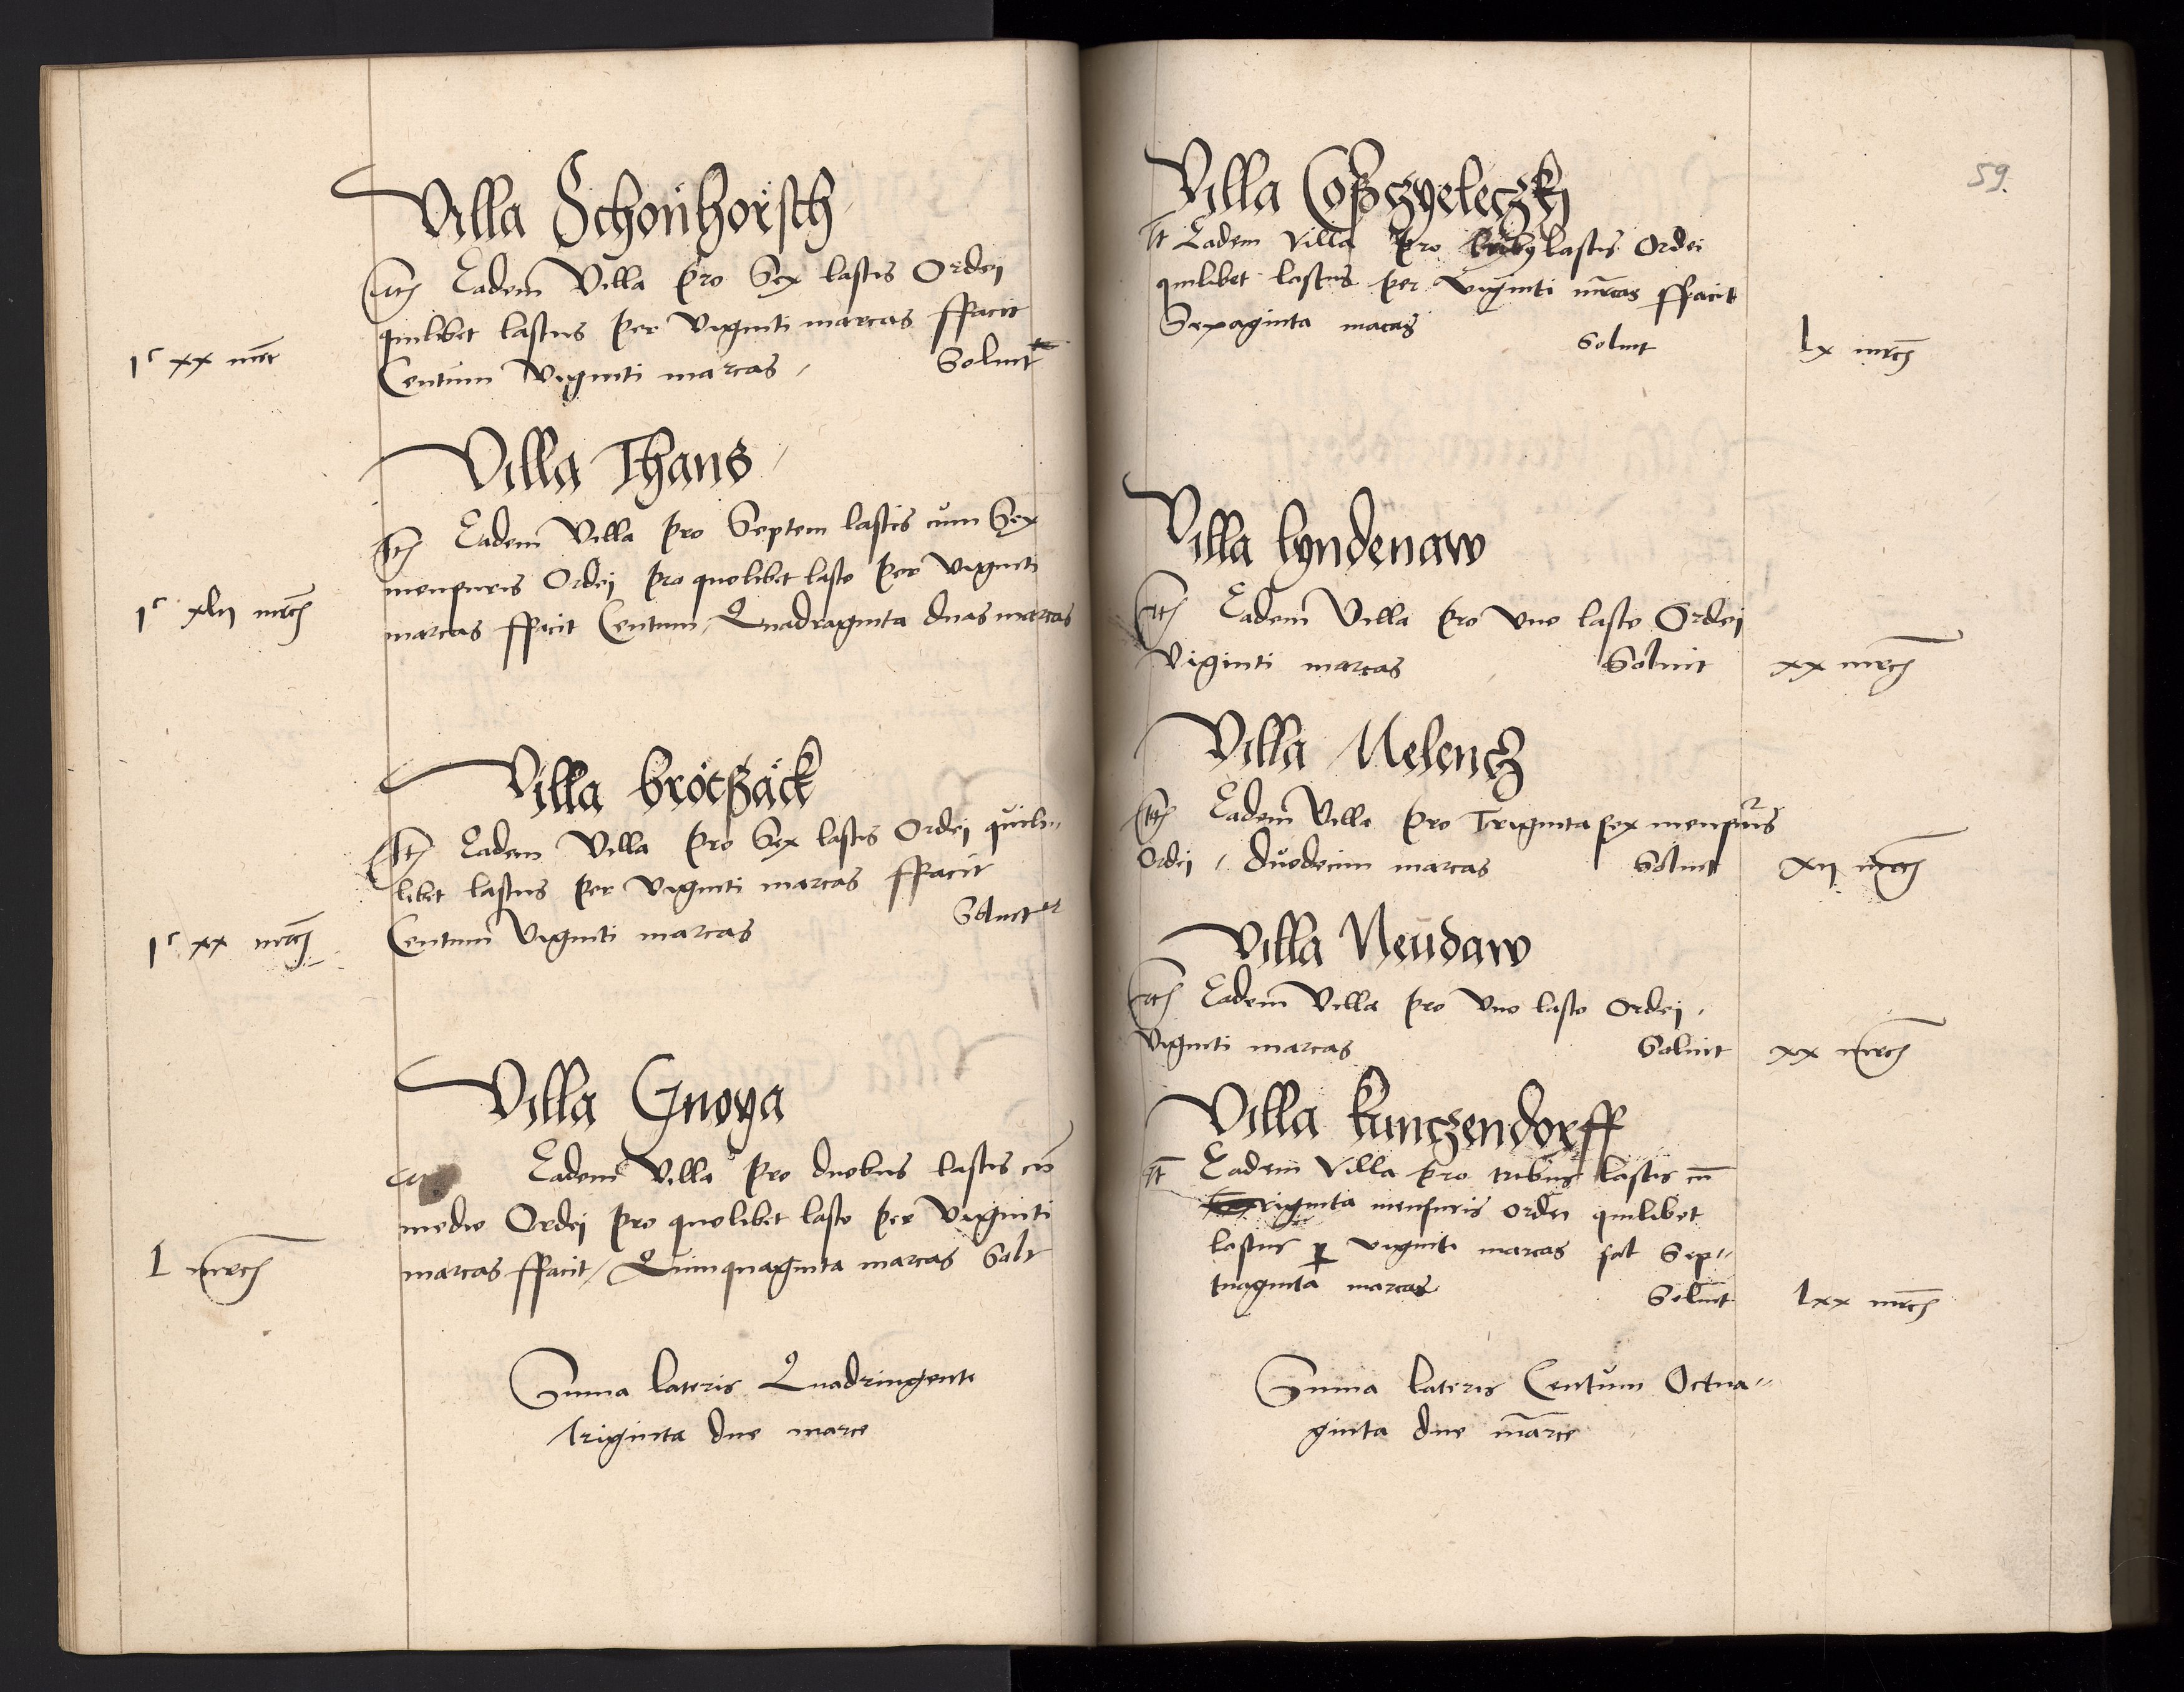 Villa Schonhorsch
Itm Eadem Villa pro Sex lastis Ordej
quilibet lastus per Viginti marcas ffacit
Centum Viginti marcas / Soluit
1c xx mrc
Villa Thans /
Itm Eadem Villa pro Septem lastis cum Sex
mensuris Ordej pro quolibet lasto per Viginti
marcas ffacit Centum Quadraginta duas marcas
1c xlij mrc
Villa brotsack
Itm Eadem Villa pro Sex lastis Ordej quili„
libet lastus per Viginti marcas ffacit
Centum Viginti marcas Soluit
1c xx mrc
Villa Gnoya
Eadem Villa pro duobus lastis cū
medio Ordej pro quolibet lasto per Viginti
marcas ffacit / Quinquaginta marcas Solt
L mrc
Suma lateris Quadringente
triginta due marce
59.
Villa Coßczyeleczkj
It Eadem Villa pro lastis Ordei
quilibet lastus per Viginti mrcas ffacit
Sexaginta macas Soluit
lx mrc
Villa lyndenaw
Itm Eadem Villa pro Vno lasto Ordej
Viginti marcas Soluit xx mrc
Villa Melencz
Itm Eadem Villa pro Triginta sex mensuris
Ordej / duodecim marcas Soluit xij mrc
Villa Neudaw
Itm Eadem Villa pro Vno lasto Ordej /
Viginti marcas Soluit xx mrc
Villa kunczendorff
It Eadem Villa pro tribus lastis cū
riginta mensuris ordei quilibet
lastus p viginti marcas fat Sep„
tuaginta marcas Soluit lxx mrc
Suma lateris Centum Octua„
ginta due marce